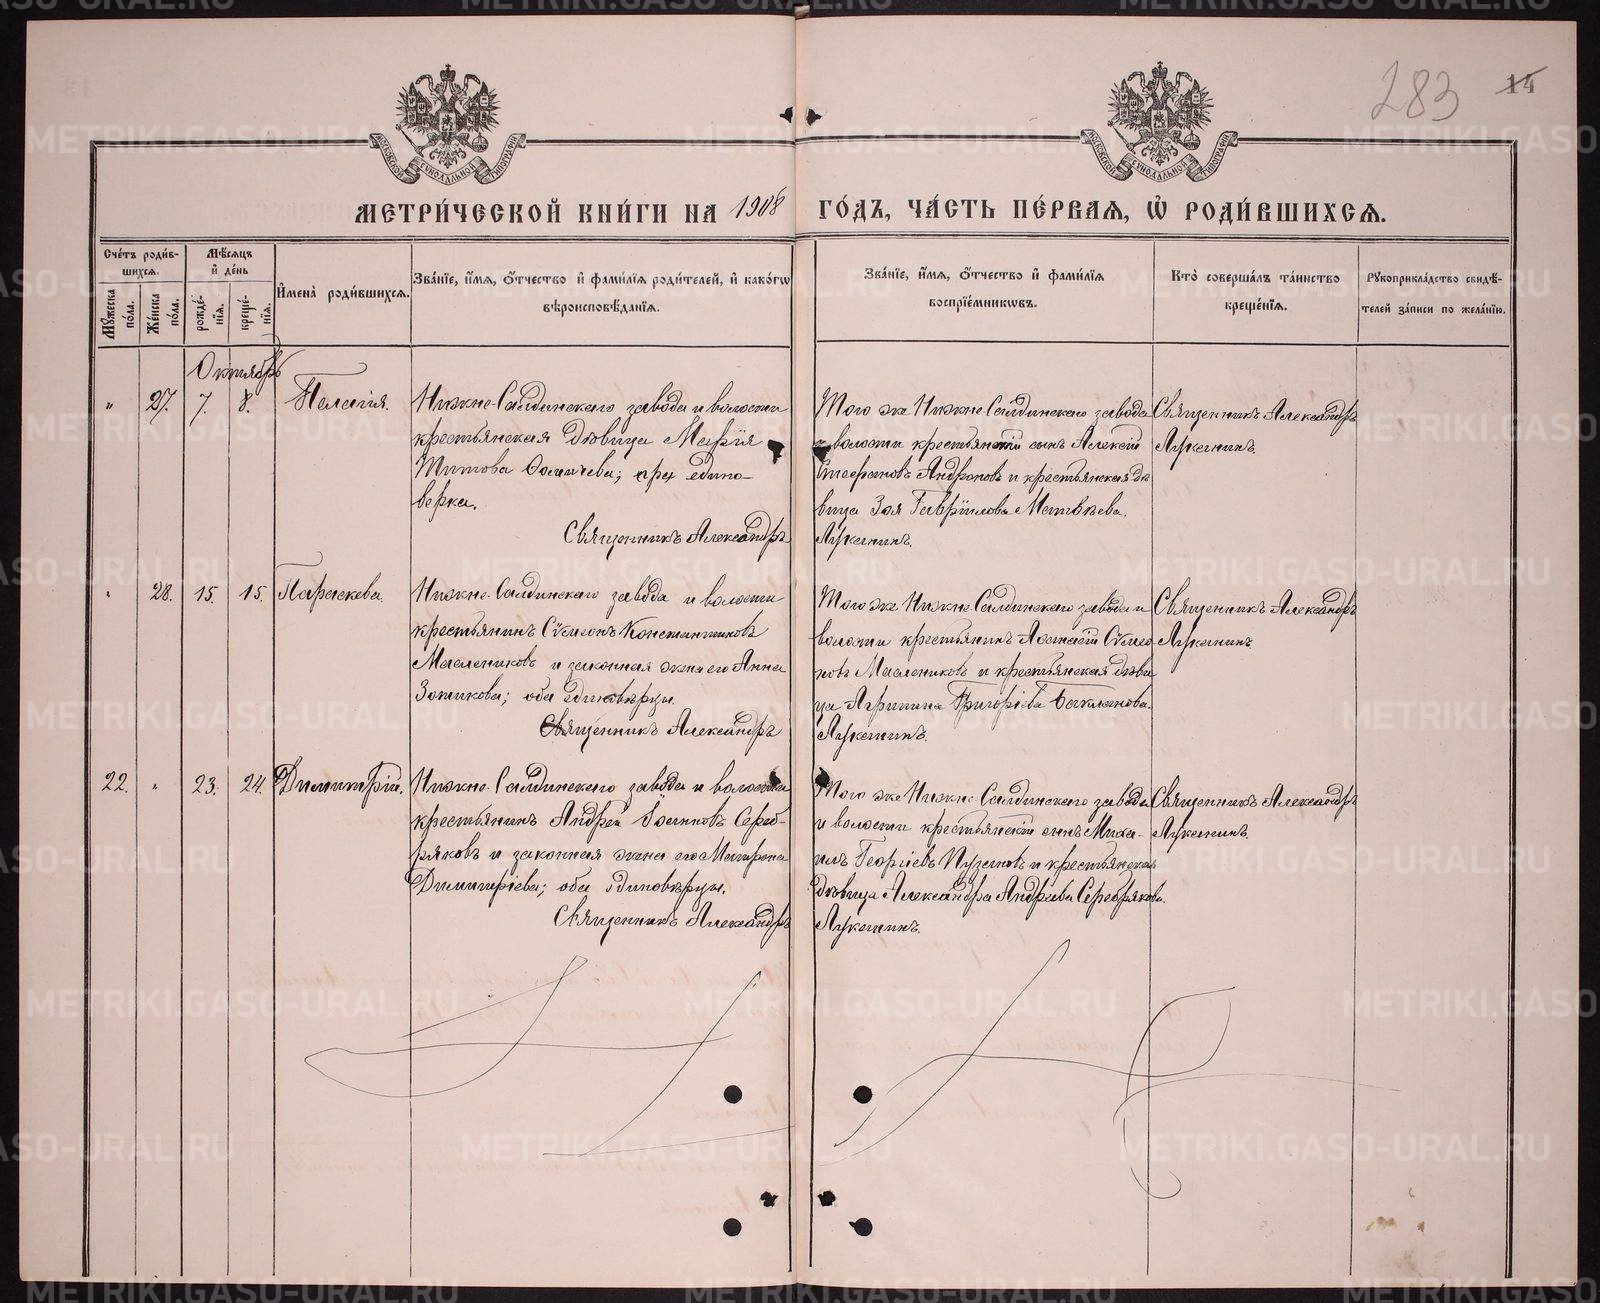 283 14
МОСКОВСКОЙ СѴНОДАЛЬНОЙ ТИПОГРАФІИ
МОСКОВСКОЙ СѴНОДАЛЬНОЙ ТИПОГРАФІИ
МЕТРИ́ЧЕСКОЙ КНИ́ГИ НА 1908 ГО́ДЪ, ЧА́СТЬ ПЕ́РВАѦ, Ѡ҆ РОДИ́ВШИХСѦ.
Сче́тъ роди́в-
шихсѧ.
Мꙋ́жеска по́ла.
Же́нска по́ла.
Мѣ́сѧцъ и҆ де́нь
рожде́-
нїѧ.
креще́-
нїѧ.
И҆мена̀ роди́вшихсѧ.
Зва́нїе, и҆́мѧ, ѻ҆́тчество и҆ фами́лїѧ роди́телей, и҆ како́гѡ
вѣроисповѣ́данїѧ.
Зва́нїе, и҆́мѧ, ѻ҆́тчество и҆ фами́лїѧ
воспрїе́мникѡвъ.
Кто̀ соверша́лъ та́инство
креще́нїѧ.
Рꙋкоприкла́дство свидѣ́-
телей за́писи по жела́нїю.
Октябрь
" 27. 7. 8. Пелагія.
Нижне-Салдинскаго завода и волости
крестьянская девица Марія
Титова
; едино-
верка.
Священникъ Александръ
Того же Нижне-Салдинскаго завода
и волости крестьянскій сынъ Алексій
Стефановъ Андроновъ и крестьянская де
вица Зоя Гавріилова Матвѣева.
Лукинъ.
Священникъ Александръ
Лукинъ.
" 28. 15. 15. Параскева.
Нижне-Салдинскаго завода и волости
крестьянинъ Сѵмеонъ Константиновъ
Маслениковъ и законная жена его Анна
Зотикова; оба единовѣрцы.
Священникъ Александръ
Того же Нижне-Салдинскаго завода и
волости крестьянинъ Сѵмео
новъ Маслениковъ и крестьянская дѣви
ца Агрипина Григоріева Бакланова.
Лукинъ.
Священникъ Александръ
Лукинъ.
22. " 23. 24. Димитрій.
Нижне-Салдинскаго завода и волости
крестьянинъ Андрей Іоанновъ Сереб-
ряковъ и законная жена его Матрона
Димитріева; оба единовѣрцы.
Священникъ Александръ
Того же Нижне-Салдинскаго завода
и волости крестьянскій сынъ Миха-
илъ Георгіевъ Пузановъ и крестьянская
дѣвица Александра Андреева Серебрякова.
Лукинъ.
Священникъ Александръ
Лукинъ.
METRIKI.GASO-URAL.RU